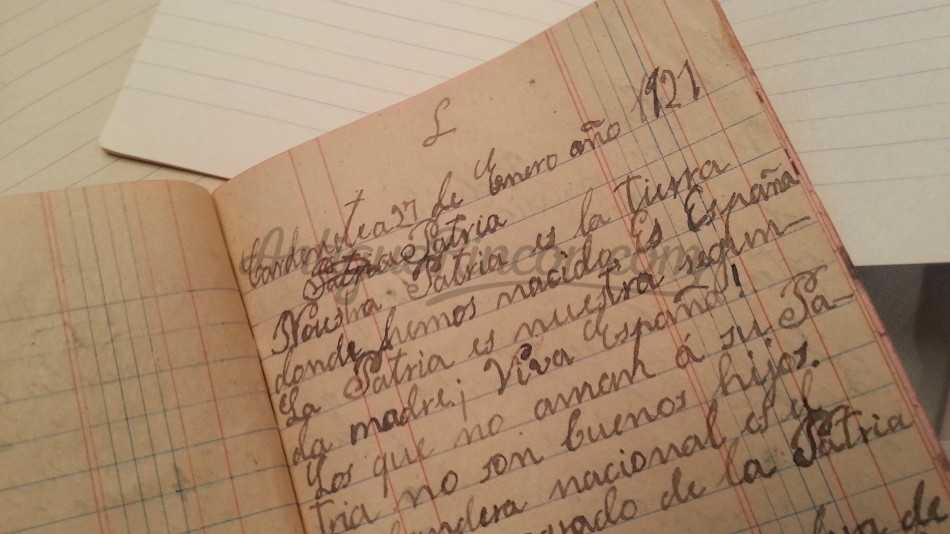 L
de Enero año 1921
Patria Patria
Noustra Patria es la tierra
donde hemos nacido, Es España
La Patria es nuestra segun-
da madre; Viva España!
Los que no amam á su Pa-
tria no son buenos hijos.
bandera nacional, es el
de la Patria
de